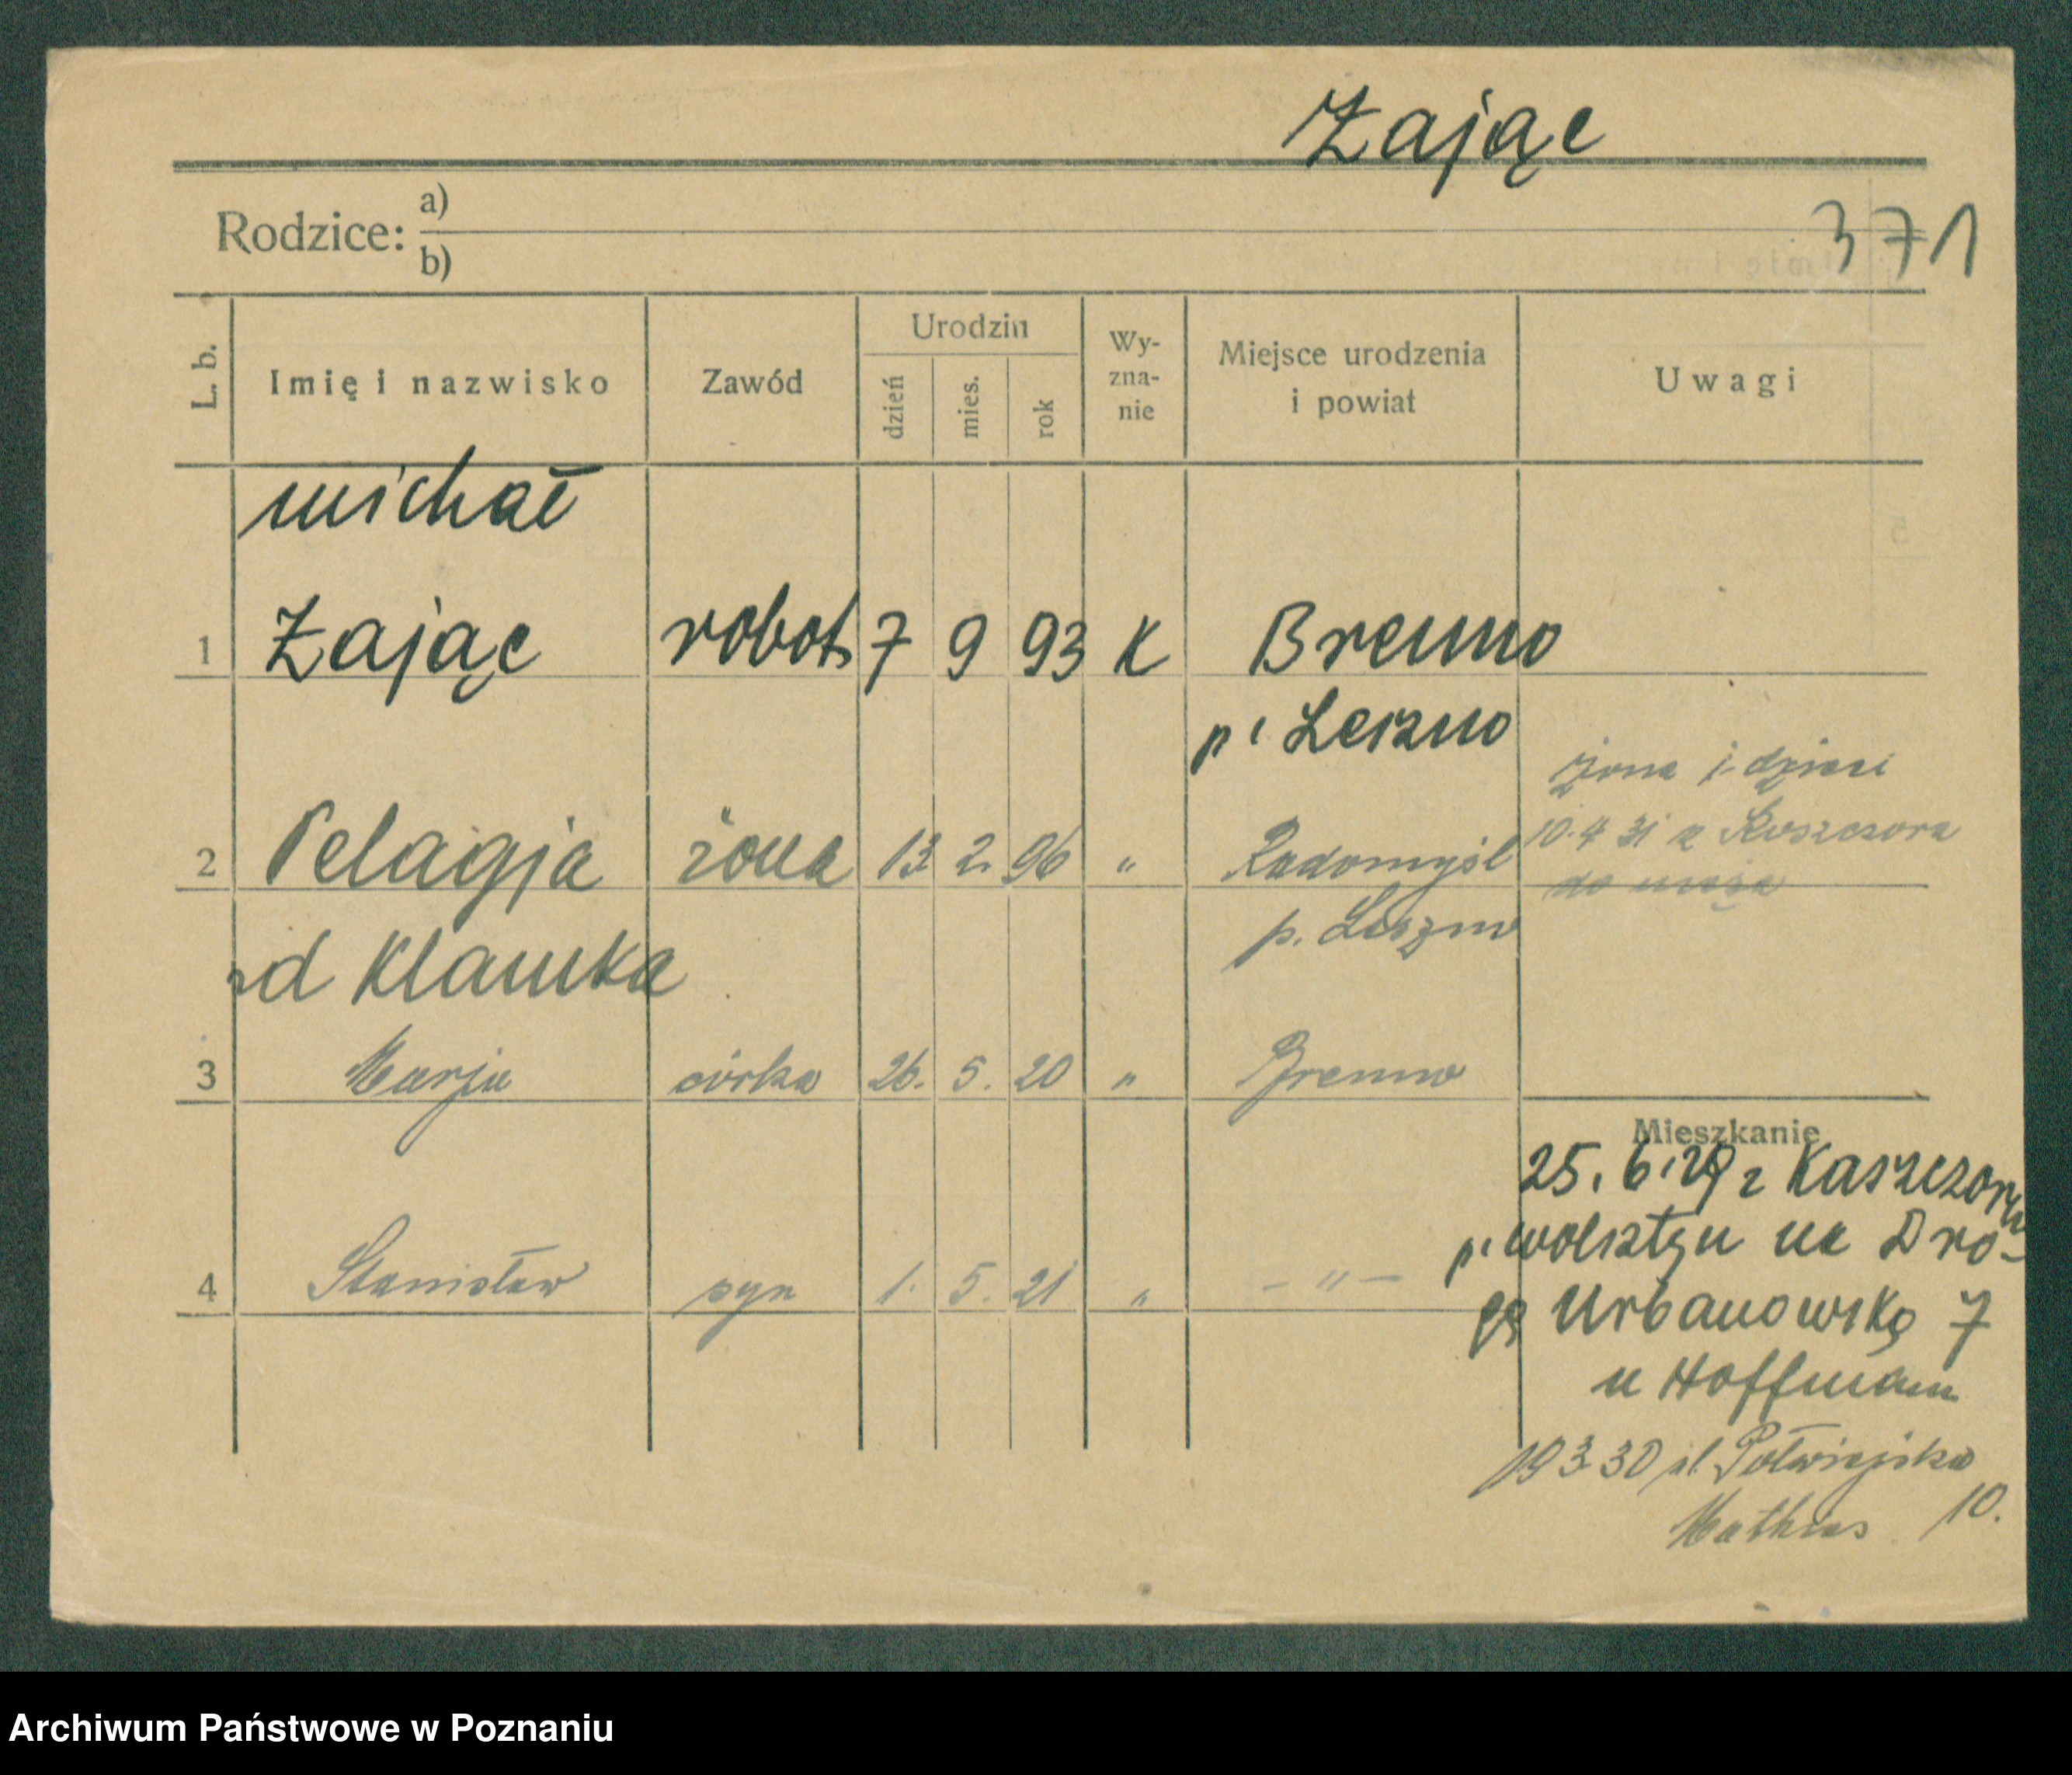 Zając
371
Rodzice: a)
b)
L. b. Imię i nazwisko Zawód Urodzin dzień mies. rok Wy-zna-nie Miejsce urodzenia i powiat Uwagi
Michał
1 Zając robot. 7 9 93 K Brenno
p. Leszno
żona i dzieci
10.4 31 z Kaszczora
2 Pelagja żona 13. 2. 96 " Radomyśl
do męża
p. Leszno
od Klamka
3 Marja córka 26. 5. 20 " Brenno
Mieszkanie
25.6.29 z Kaszczoru
p. Wolsztyn na Dro-
4 Stanisław syn 1. 5. 21 " - " -
gę Urbanowską 7
u Hoffmann
19 3 30 ul. Półwiejska
Mathias 10.
Archiwum Państwowe w Poznaniu